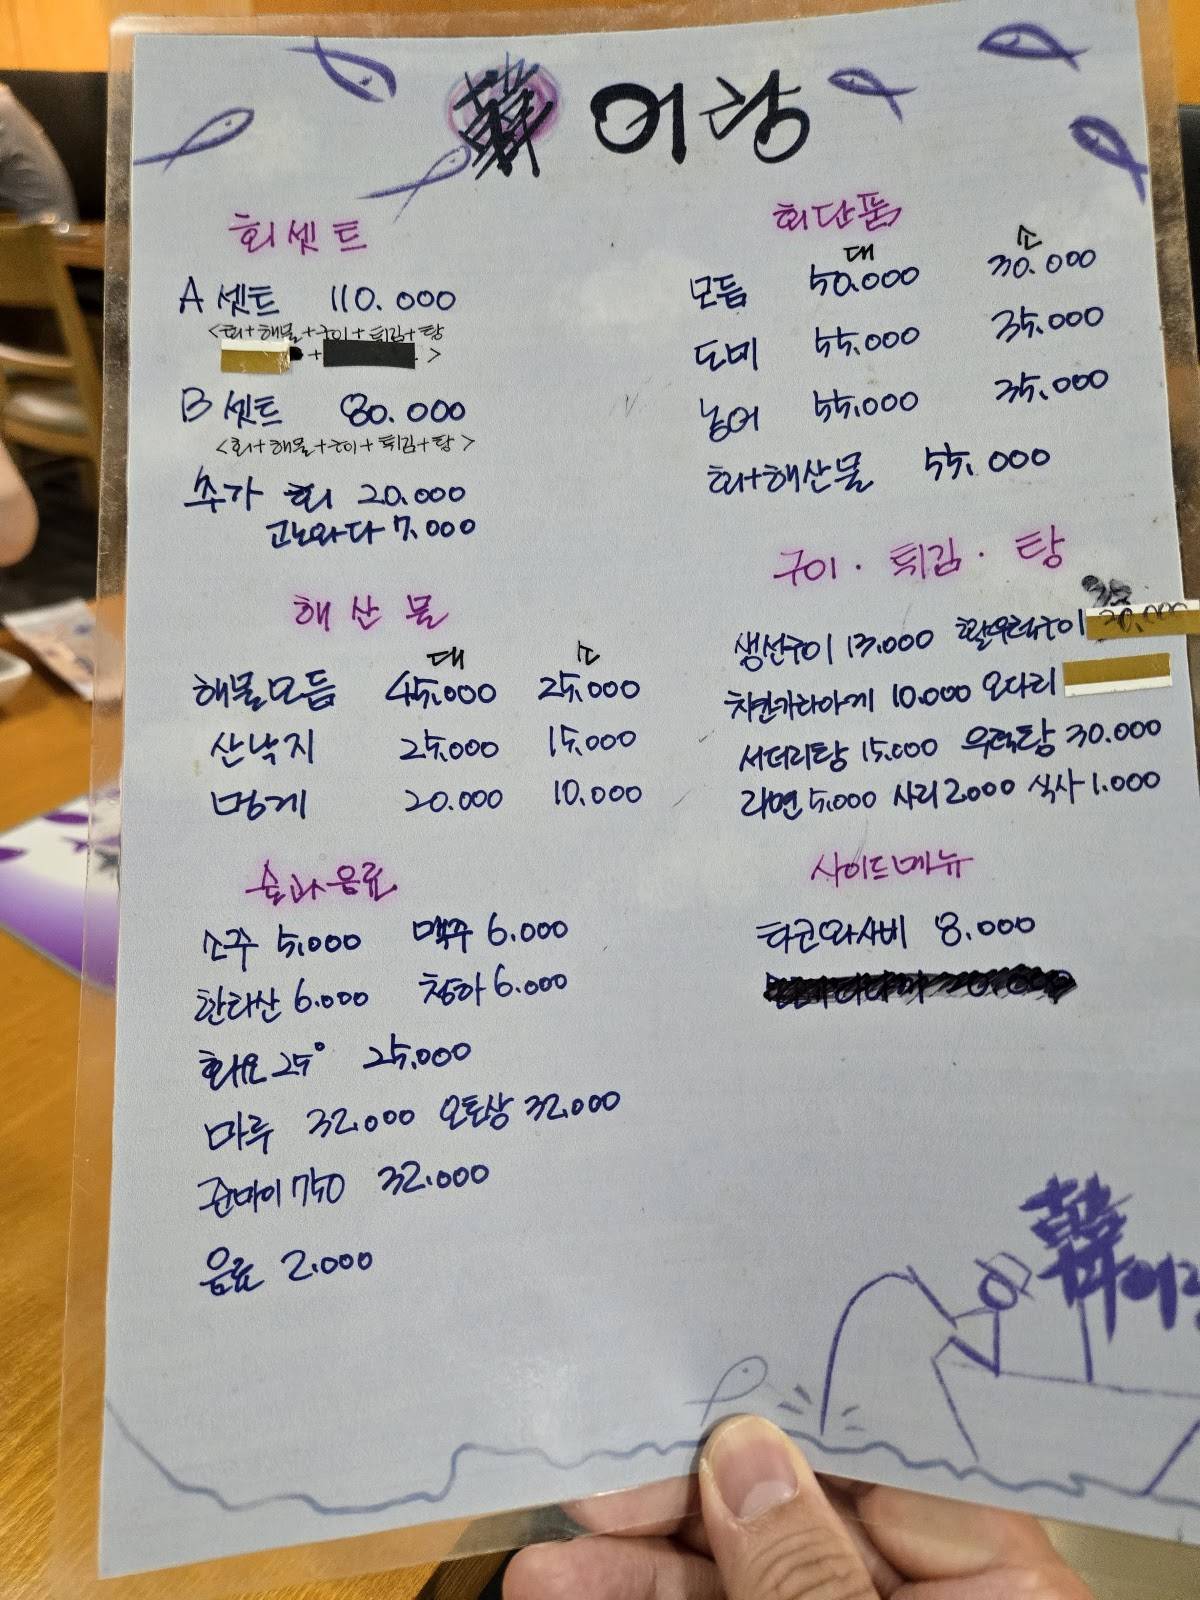 韓 어랑
회셋트
A 셋트 110.000
<회+해물+구이+튀김+탕
+ >
B 셋트 80.000
<회+해물+구이+튀김+탕>
추가 회 20.000
고노와다 7.000
해산물
대 소
해물모듬 45.000 25.000
산낙지 25.000 15.000
멍게 20.000 10.000
술과음료
소주 5.000 맥주 6.000
한라산 6.000 청하 6.000
화요 25° 25.000
마루 32.000 오토상 32.000
준마이 750 32.000
음료 2.000
회단품
대 소
모듬 50.000 30.000
도미 55.000 35.000
농어 55.000 35.000
회+해산물 55.000
구이 · 튀김 · 탕
생선구이 13.000 활우럭구이
치킨가라아게 10.000 오다리
서더리탕 15.000 우럭탕 30.000
라면 5.000 사리 2.000 식사 1.000
사이드메뉴
타코와사비 8.000
韓어랑